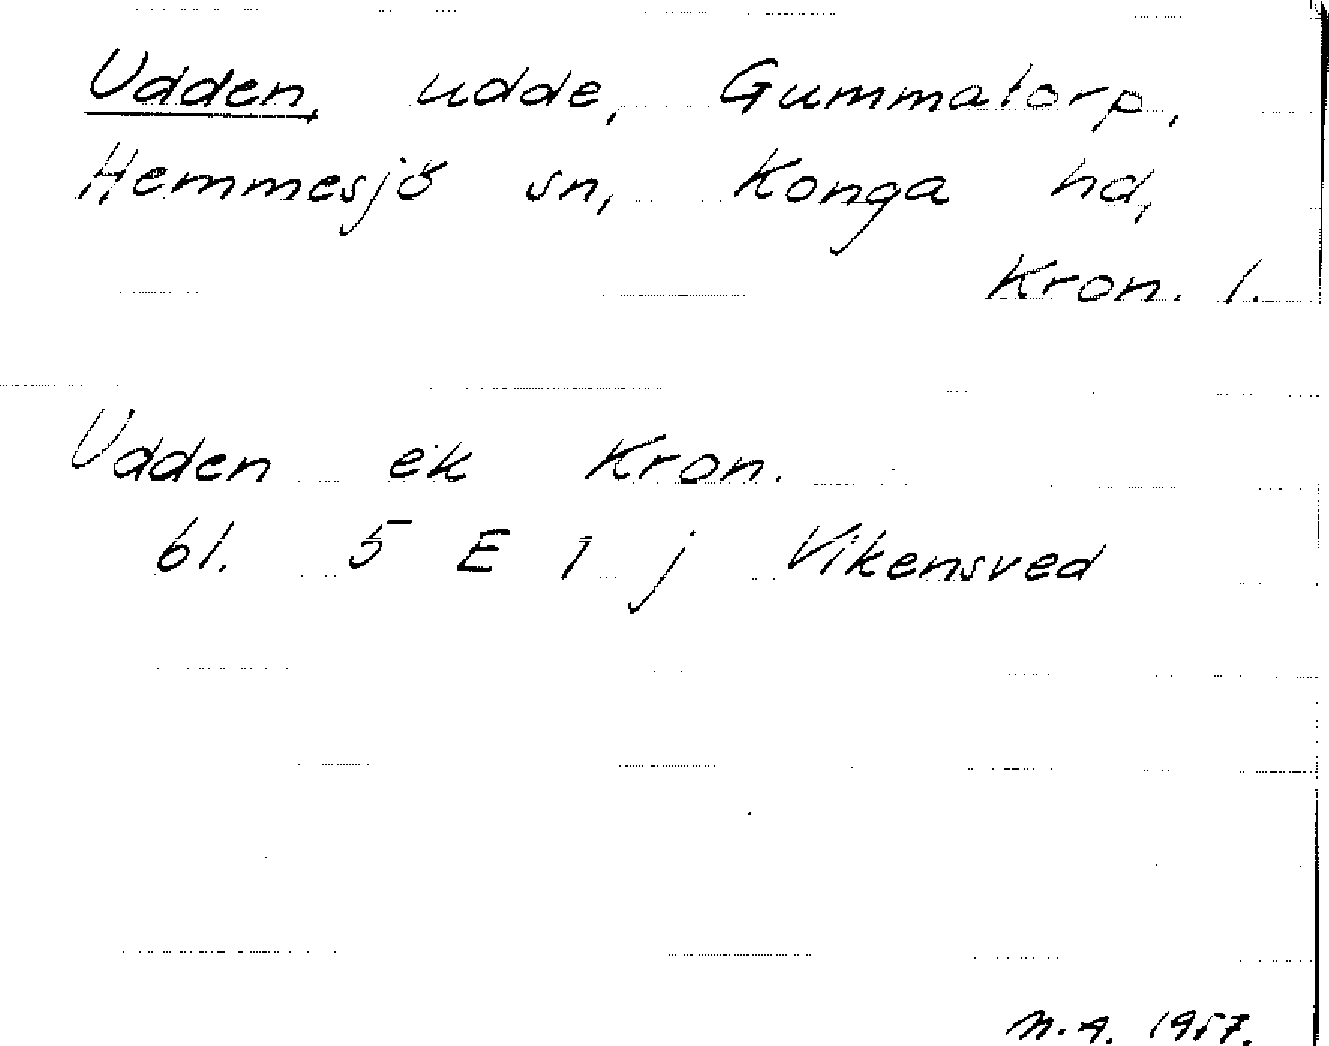 Udden, udde, Gummatorp,
Hemmesjö sn, Konga hd,
Kron. l.
Udden ek Kron.
bl. 5 E 1 j Vikensved
M.A. 1957.